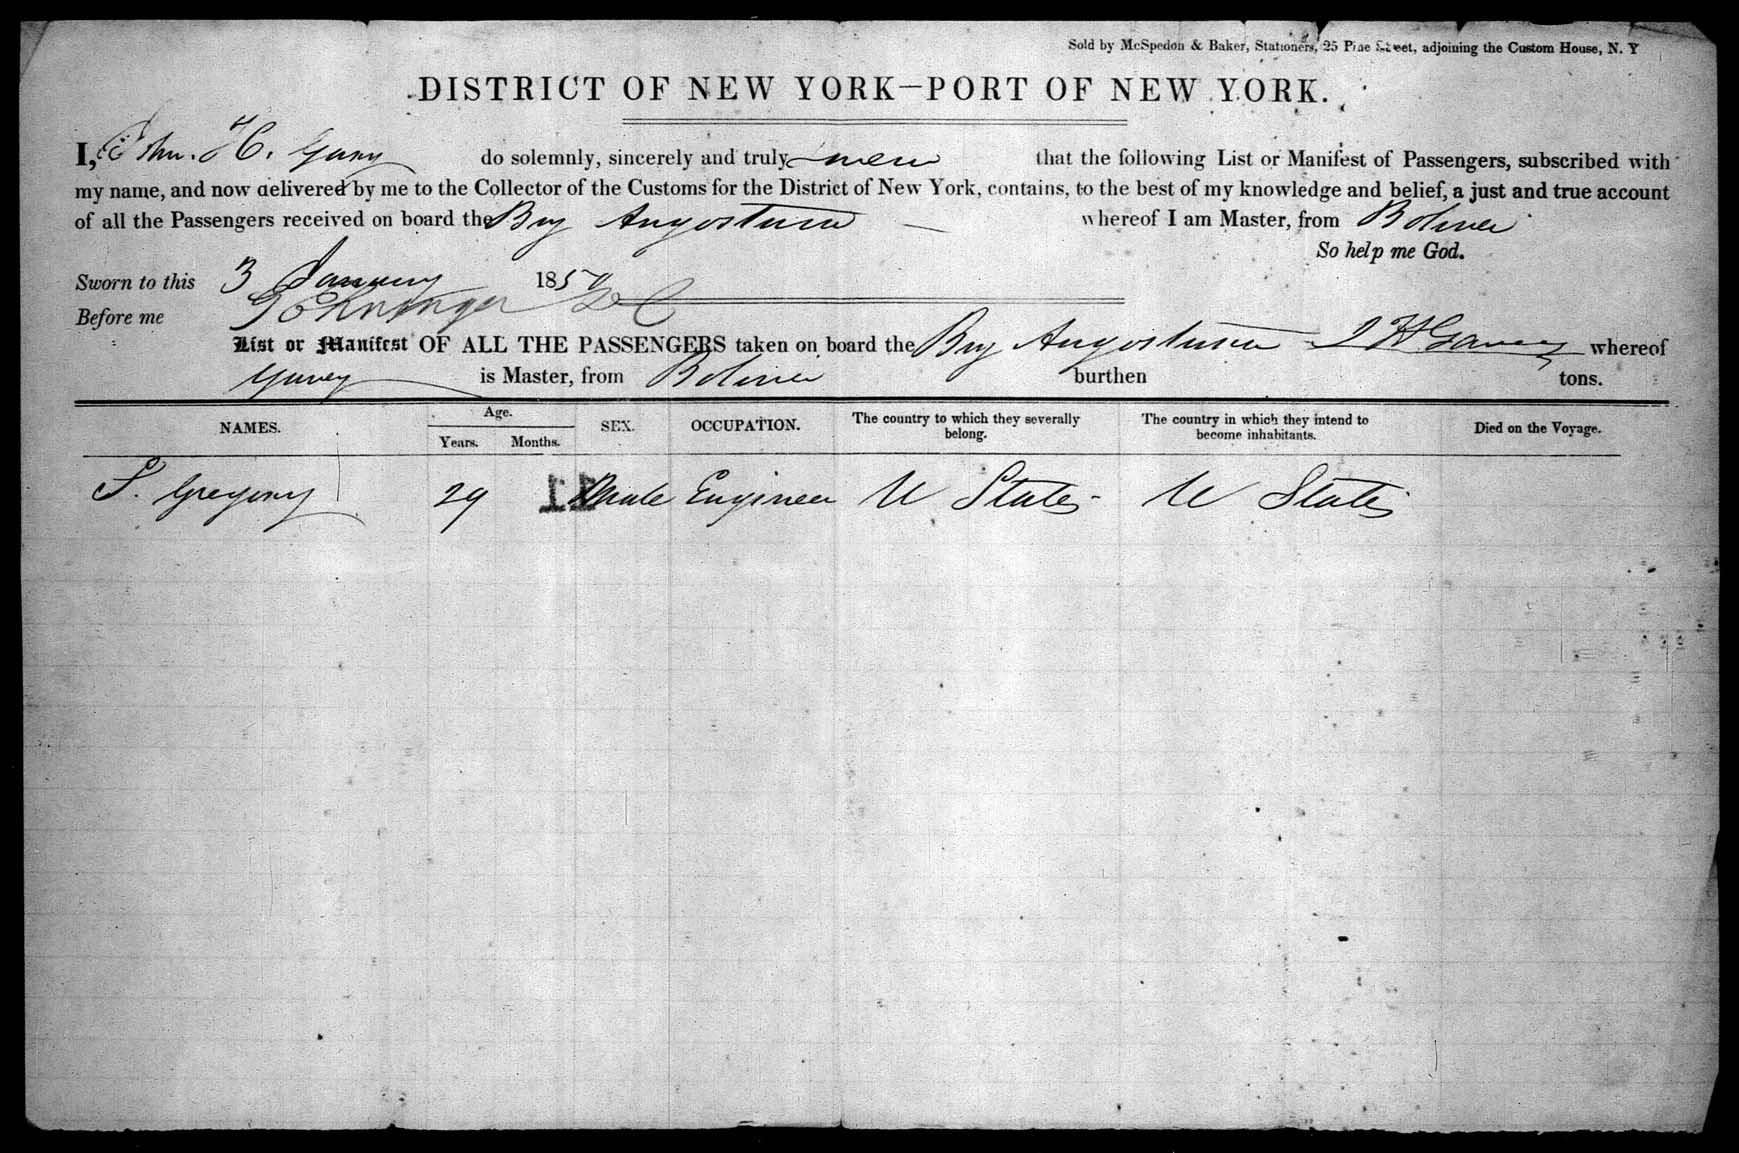 Sold by McSpedon & Baker, Stationers, 25 Pine Street, adjoining the Custom House, N. Y
DISTRICT OF NEW YORK—PORT OF NEW YORK.
I, Jno. H. do solemnly, sincerely and truly swear that the following List or Manifest of Passengers, subscribed with
my name, and now delivered by me to the Collector of the Customs for the District of New York, contains, to the best of my knowledge and belief, a just and true account
of all the Passengers received on board the Brig Angostura whereof I am Master, from Bolivar
So help me God.
Sworn to this 3 January 1850
Before me
List or Manifest OF ALL THE PASSENGERS taken on board the Brig Angostura whereof
is Master, from Bolivar burthen tons.
NAMES. Age. Years. Months. SEX. OCCUPATION. The country to which they severally belong. The country in which they intend to become inhabitants. Died on the Voyage.
S. Gregory 29 Male Engineer U States U States